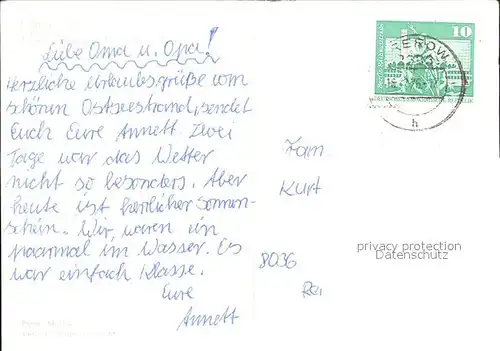 Liebe Oma u. Opa!
Herzliche Urlaubsgrüße vom
schönen Ostseestrand, sendet
Euch Eure Annett. Zwei
Tage war das Wetter
nicht so besonders. Aber
heute ist herrlicher Sonnen-
schein. Wir waren ein
paarmal im Wasser. Es
war einfach Klasse.
Eure
Annett
10
h
Fam
Kurt
privacy protection
Datenschutz
8036